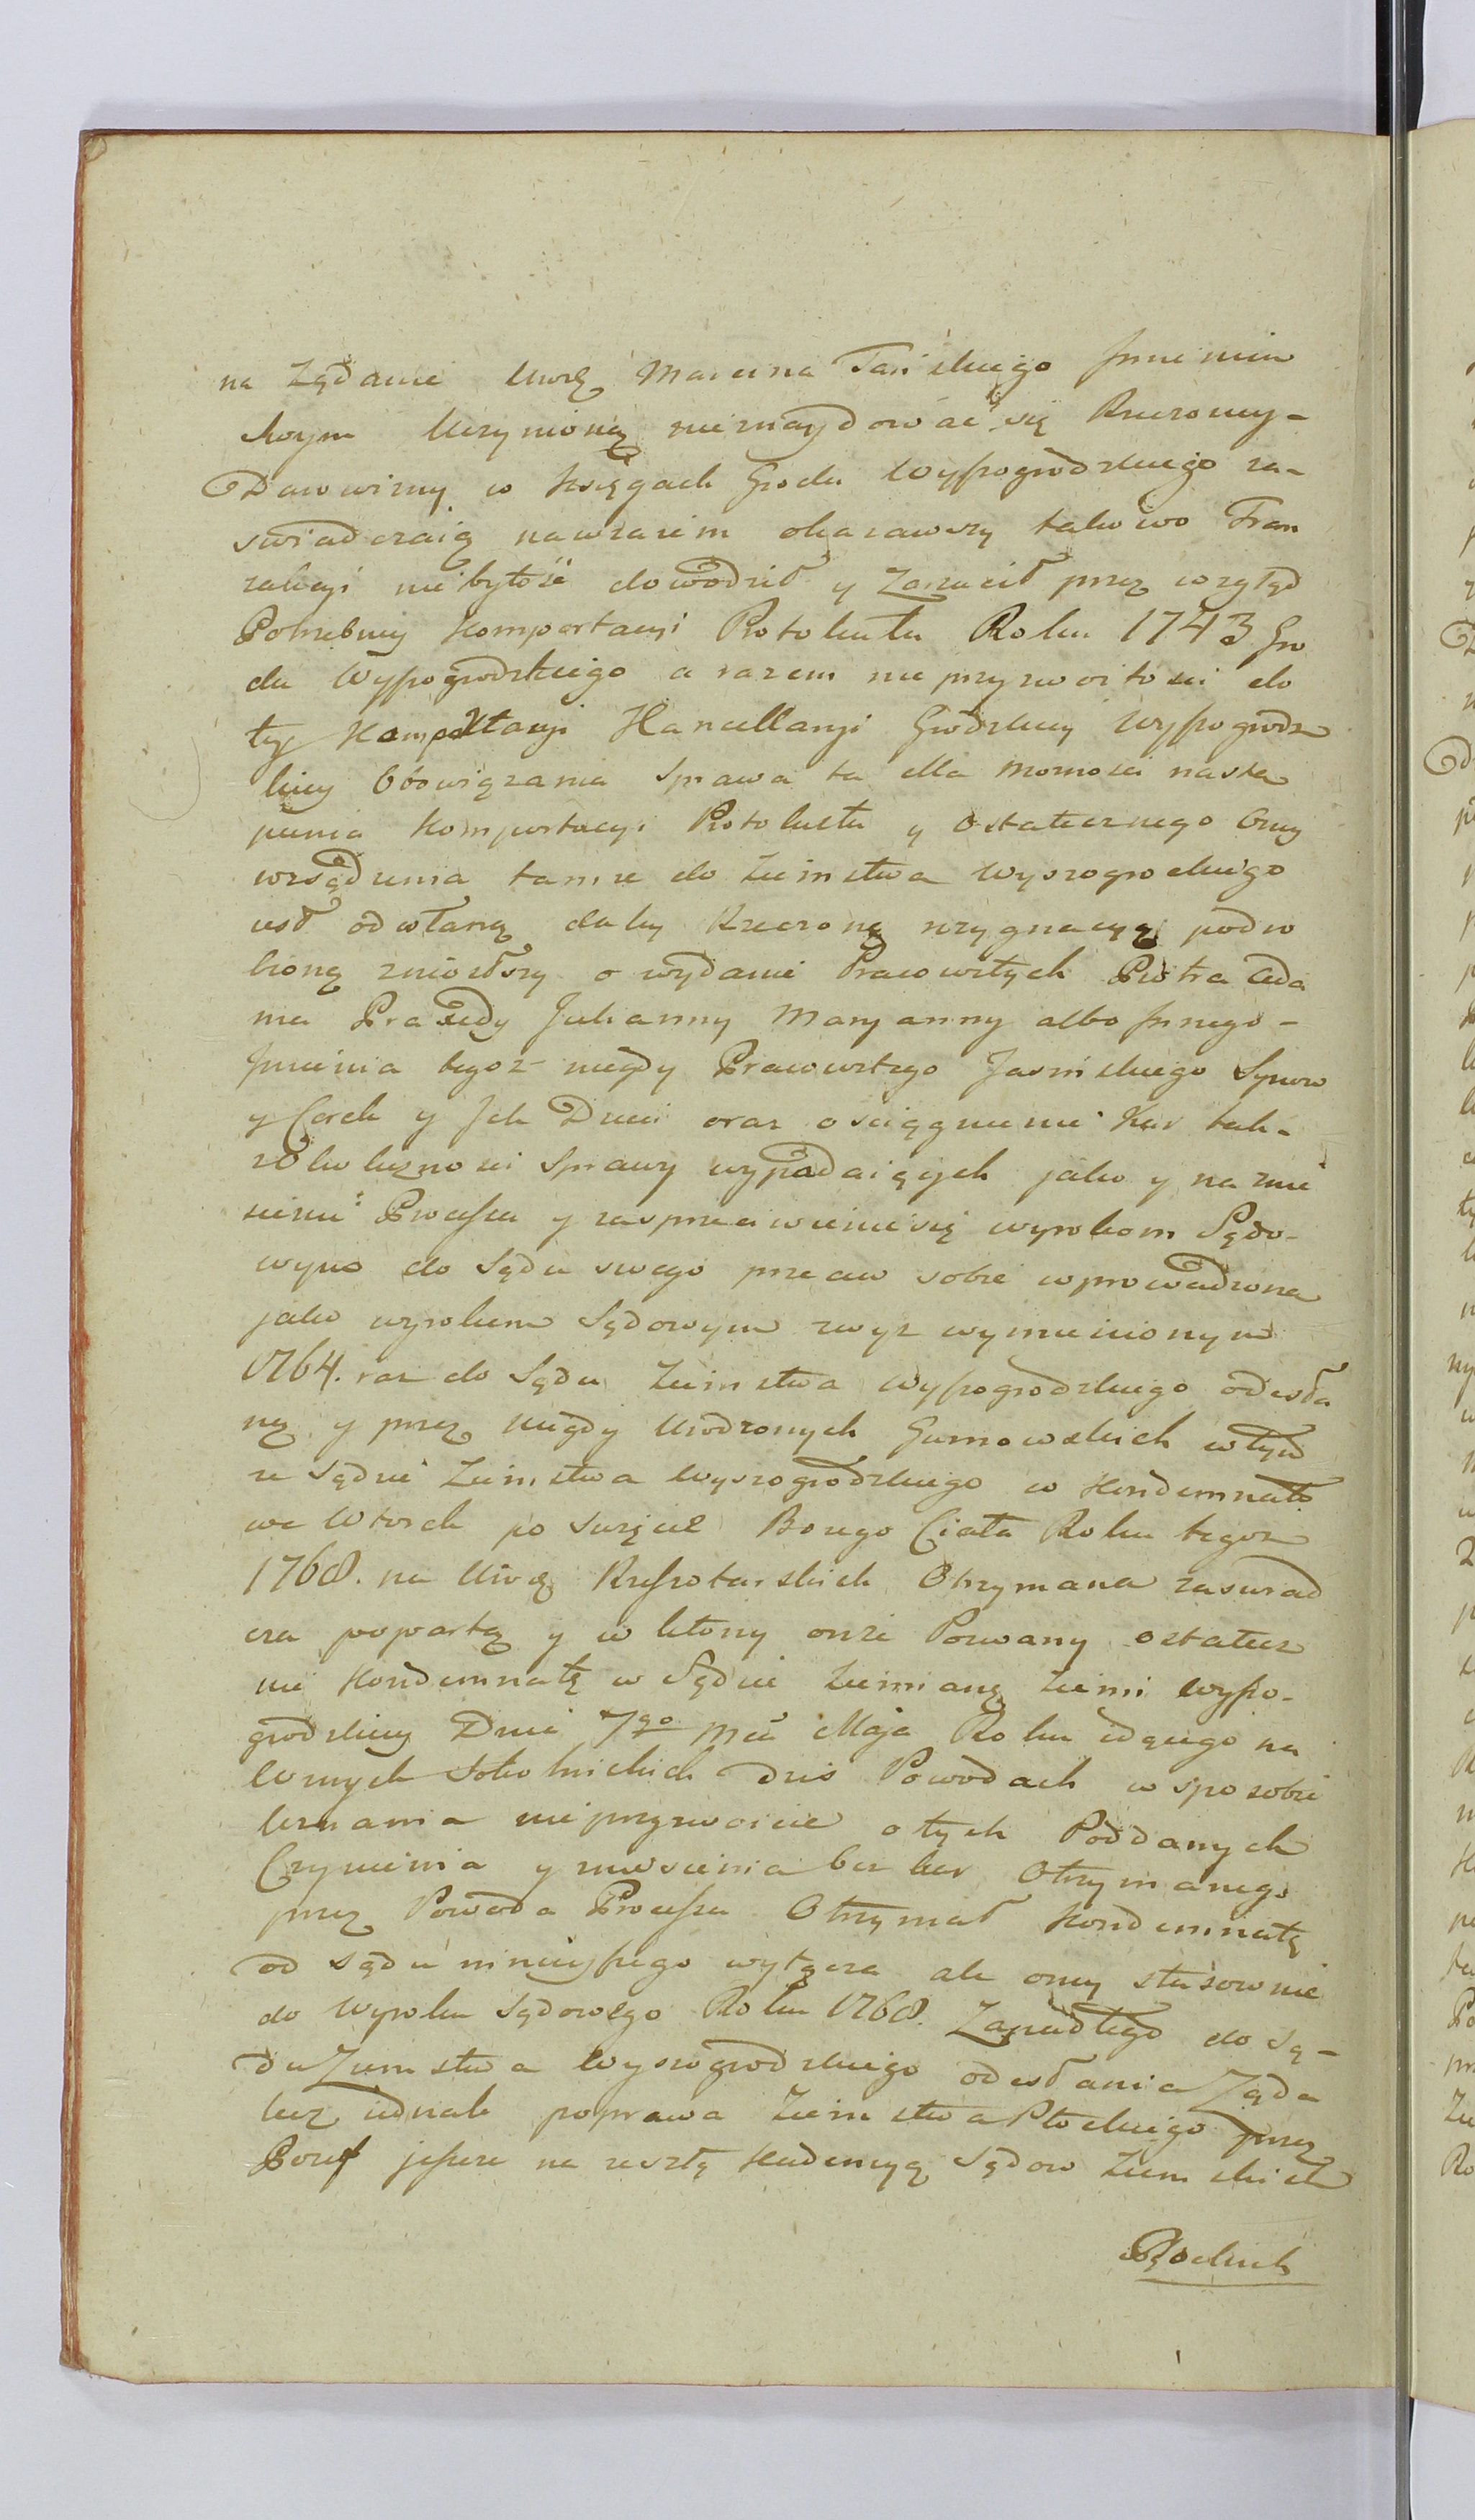 na Żądanie Urodz. Marcina Tańskiego Jmieniem
swym Uczynioną nieznaydować się Rzeczony-
Dawowizny w Księgach Grodu Wyszogrodzkiego za-
swiadczaią nawzaiem okazawszy takowo Tran
zakcyi niebytość dowodził y Zarzucił przez wzgląd
Potrzebnej Komportacyi Protokułu Roku 1743 Gro
du Wyszogrodzkiego a razem nieprzyzwoitości do
tey Komportacyi Kancellaryi Grodzkiey Wyszogrodz
kiey Obowiązania Sprawa ta dla mocności nastą
pienia Komportacyi Protokułu y Ostatecznego Oney
wsądzenia tamże do Ziemstwa Wyszogrodzkiego
iest odesłaną daley Rzeczoną
zniosłszy o wydanie Pracowitych Piotra Ada
ma Praxedy Julianny Maryanny albo Jnnego-
Jmienia tegoż niegdy Pracowitego Jasinskiego Synow
y Corek y Jch Dzieci oraz ościągnienie Kar tak-
zokoliczności Sprawy wypadaiących jako y na znie
sienie Processu y zasprzeciwieniesię wyrokom Sądo-
wym do Sądu swego przeciw sobie wprowadzona
jako wyrokiem Sądowym zwyz wymienionym
1764. raz do Sądu Ziemstwa Wyszogrodzkiego odesła
ną y przez niegdy Urodzonych Gumowskich wtym
ze Sądzie Ziemstwa Wyszogrodzkiego w Kondemnato
we Wtorek po Swięcie Bożego Ciała Roku tegoz
1768. na Urodz. Otrzymana zaswiad
cza popartą y w letony onże Pozwany ostatecz
nie Kondemnatę w Sądzie Ziemianą Ziemi Wyszo-
grodzkiey Dnia 7go Mca Maja Roku idącego na
Urnych Sokolnickich dziś Powodach w sposobie
uznania nieprzyzwoicie o tych Poddanych
Czynienia y zniesienia bez Otrzymanego
przez Powoda Processu Otrzymał Kondemnatę
od sądu ninieyszego wyłącza ale oney stosownie
do Wyroku Sądowego Roku 1768. Zapadłego do Są-
du Ziemstwa Wyszogrodzkiego odesłania Żąda
lecz iednak poprawa Ziemstwa Płockiego przez
Pozew jeszcze na resztę Kadencyą Sądow Ziemskich
Płockich